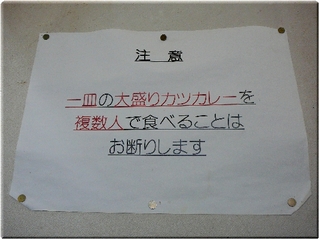 注 意
一皿の大盛りカツカレーを
複数人で食べることは
お断りします